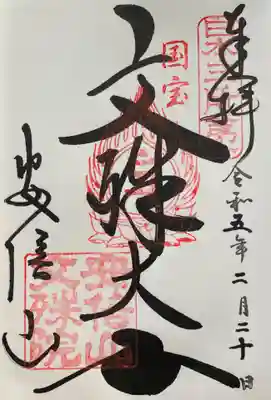 奉拝
令和五年二月二十日
国宝
文殊大士
安倍山
安倍山文殊院